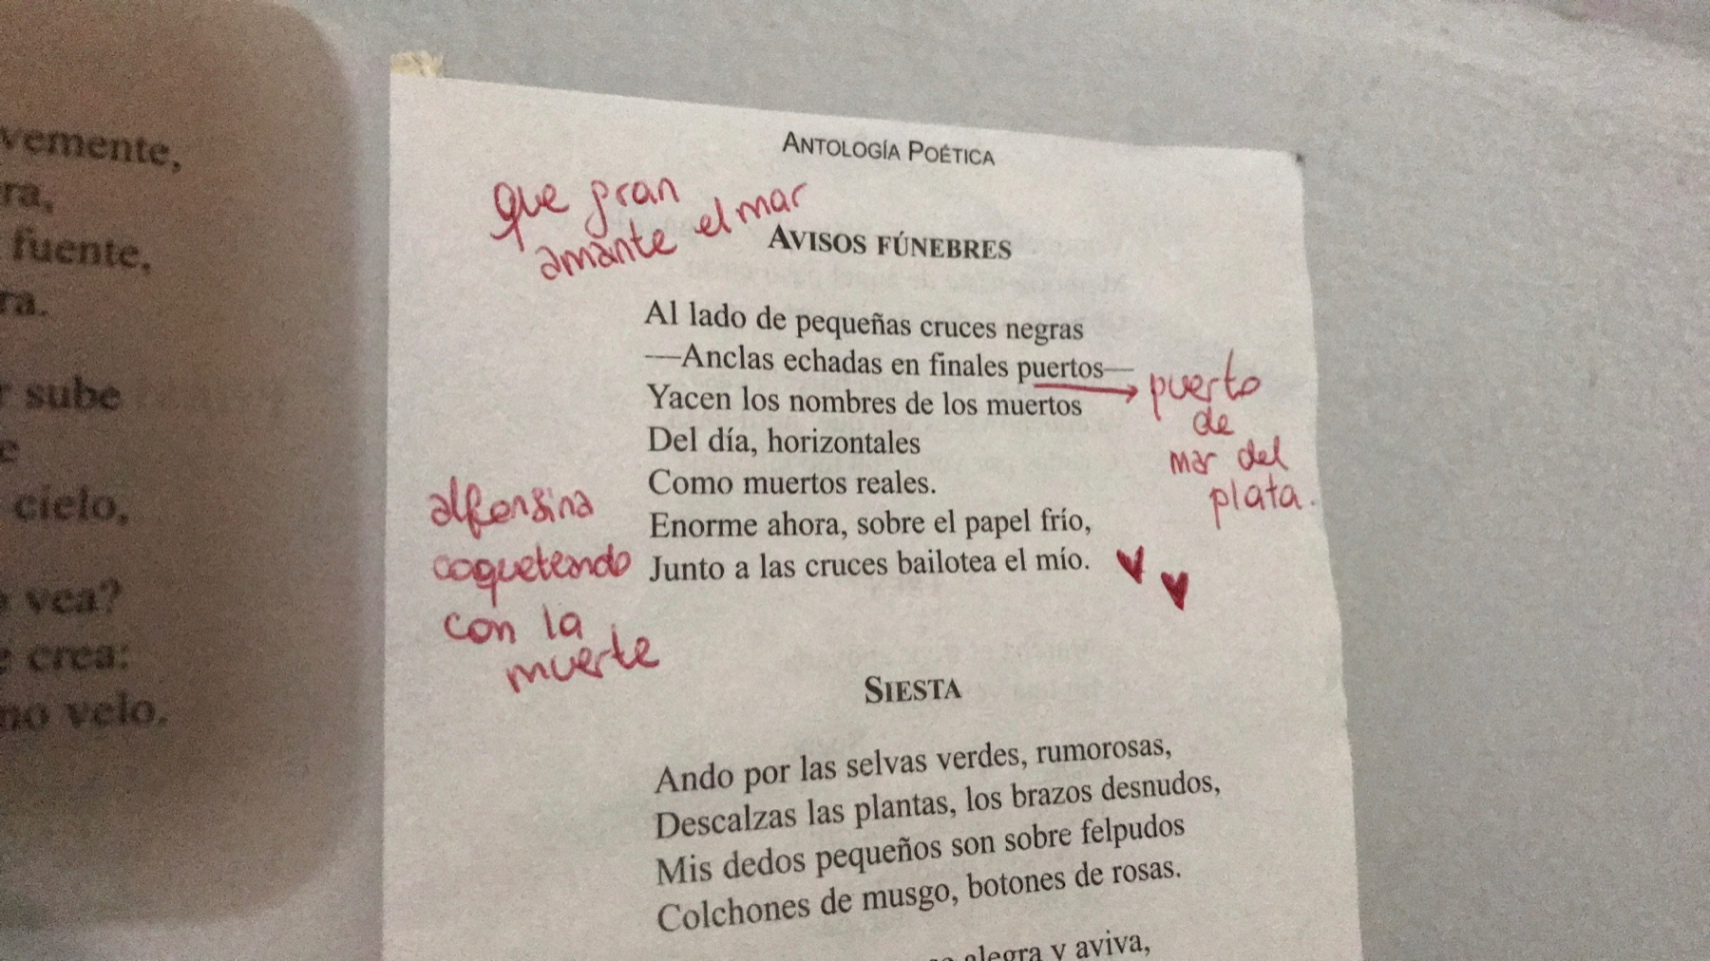 vemente,
ra,
fuente,
ra.
sube
cielo,
vea?
crea:
no velo.
ANTOLOGÍA POÉTICA
que gran
amante el mar
AVISOS FÚNEBRES
Al lado de pequeñas cruces negras
—Anclas echadas en finales puertos—
Yacen los nombres de los muertos
Del día, horizontales
Como muertos reales.
Enorme ahora, sobre el papel frío,
Junto a las cruces bailotea el mío.
puerto
de
mar del
plata.
alfonsina
coqueteando
con la
muerte
SIESTA
Ando por las selvas verdes, rumorosas,
Descalzas las plantas, los brazos desnudos,
Mis dedos pequeños son sobre felpudos
Colchones de musgo, botones de rosas.
alegra y aviva,